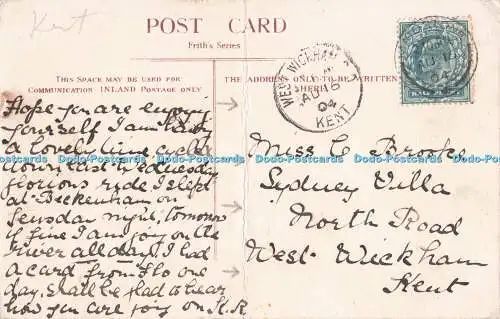 Kent
POST CARD
Frith's Series
THIS SPACE MAY BE USED FOR
COMMUNICATION INLAND POSTAGE ONLY
THE ADDRESS ONLY TO BE WRITTEN
WEST WICKHAM
AU 16
04
KENT
Hope you are enjoying
yourself I am having
a lovely time cycled
down last Wednesday
glorious ride I slept
at Beckenham on
Tuesday night, tomorrow
if fine I am going on the
river all day. I had
a card from Flo one
day, shall be glad to hear
how you are going on
Miss C Brooke
Sydney Villa
North Road
West Wickham
Kent
Dodo-Postcards Dodo-Postcards Dodo-Postcards Dodo-Postcards Dodo-Postcards Dodo-Postcards